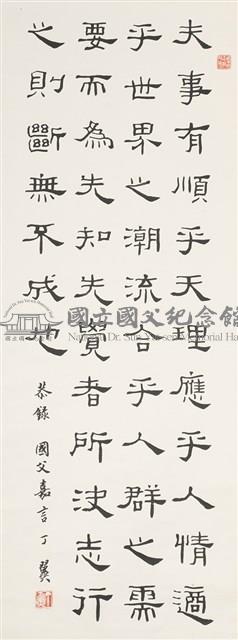 夫事有順乎天理應乎人情適
乎世界之潮流合乎人群之需
要而為先知先覺者所決志行
之則斷無不成也
恭錄 國父嘉言 丁翼
國立國父紀念館